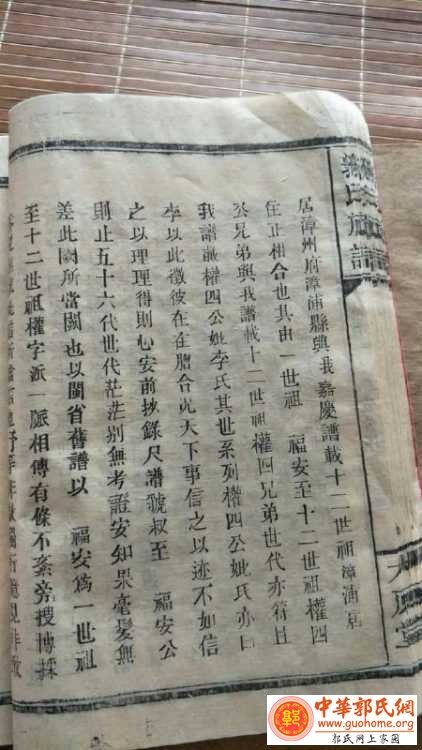 居漳州府漳浦縣與我嘉慶譜載十二世祖漳浦居
住正相合也其由一世祖 福安至十二世祖權四
公兄弟與我譜載十二世祖權四兄弟世代亦符且
我譜諱權四公妣李氏其世系列權四公妣氏亦曰
李以此徵彼在在脗合光天下事信之以迹不如信
之以理理得則心安前抄錄尺譜號叔至 福安公
則止五十六代世代茫茫别無考證安知果毫髮無
差此闕所當闕也以閩省舊譜以 福安為一世祖
至十二世祖權字派一脈相傳有條不紊旁搜博採
氏族譜
中華郭氏網
http://www.guohome.org
郭氏网上家园